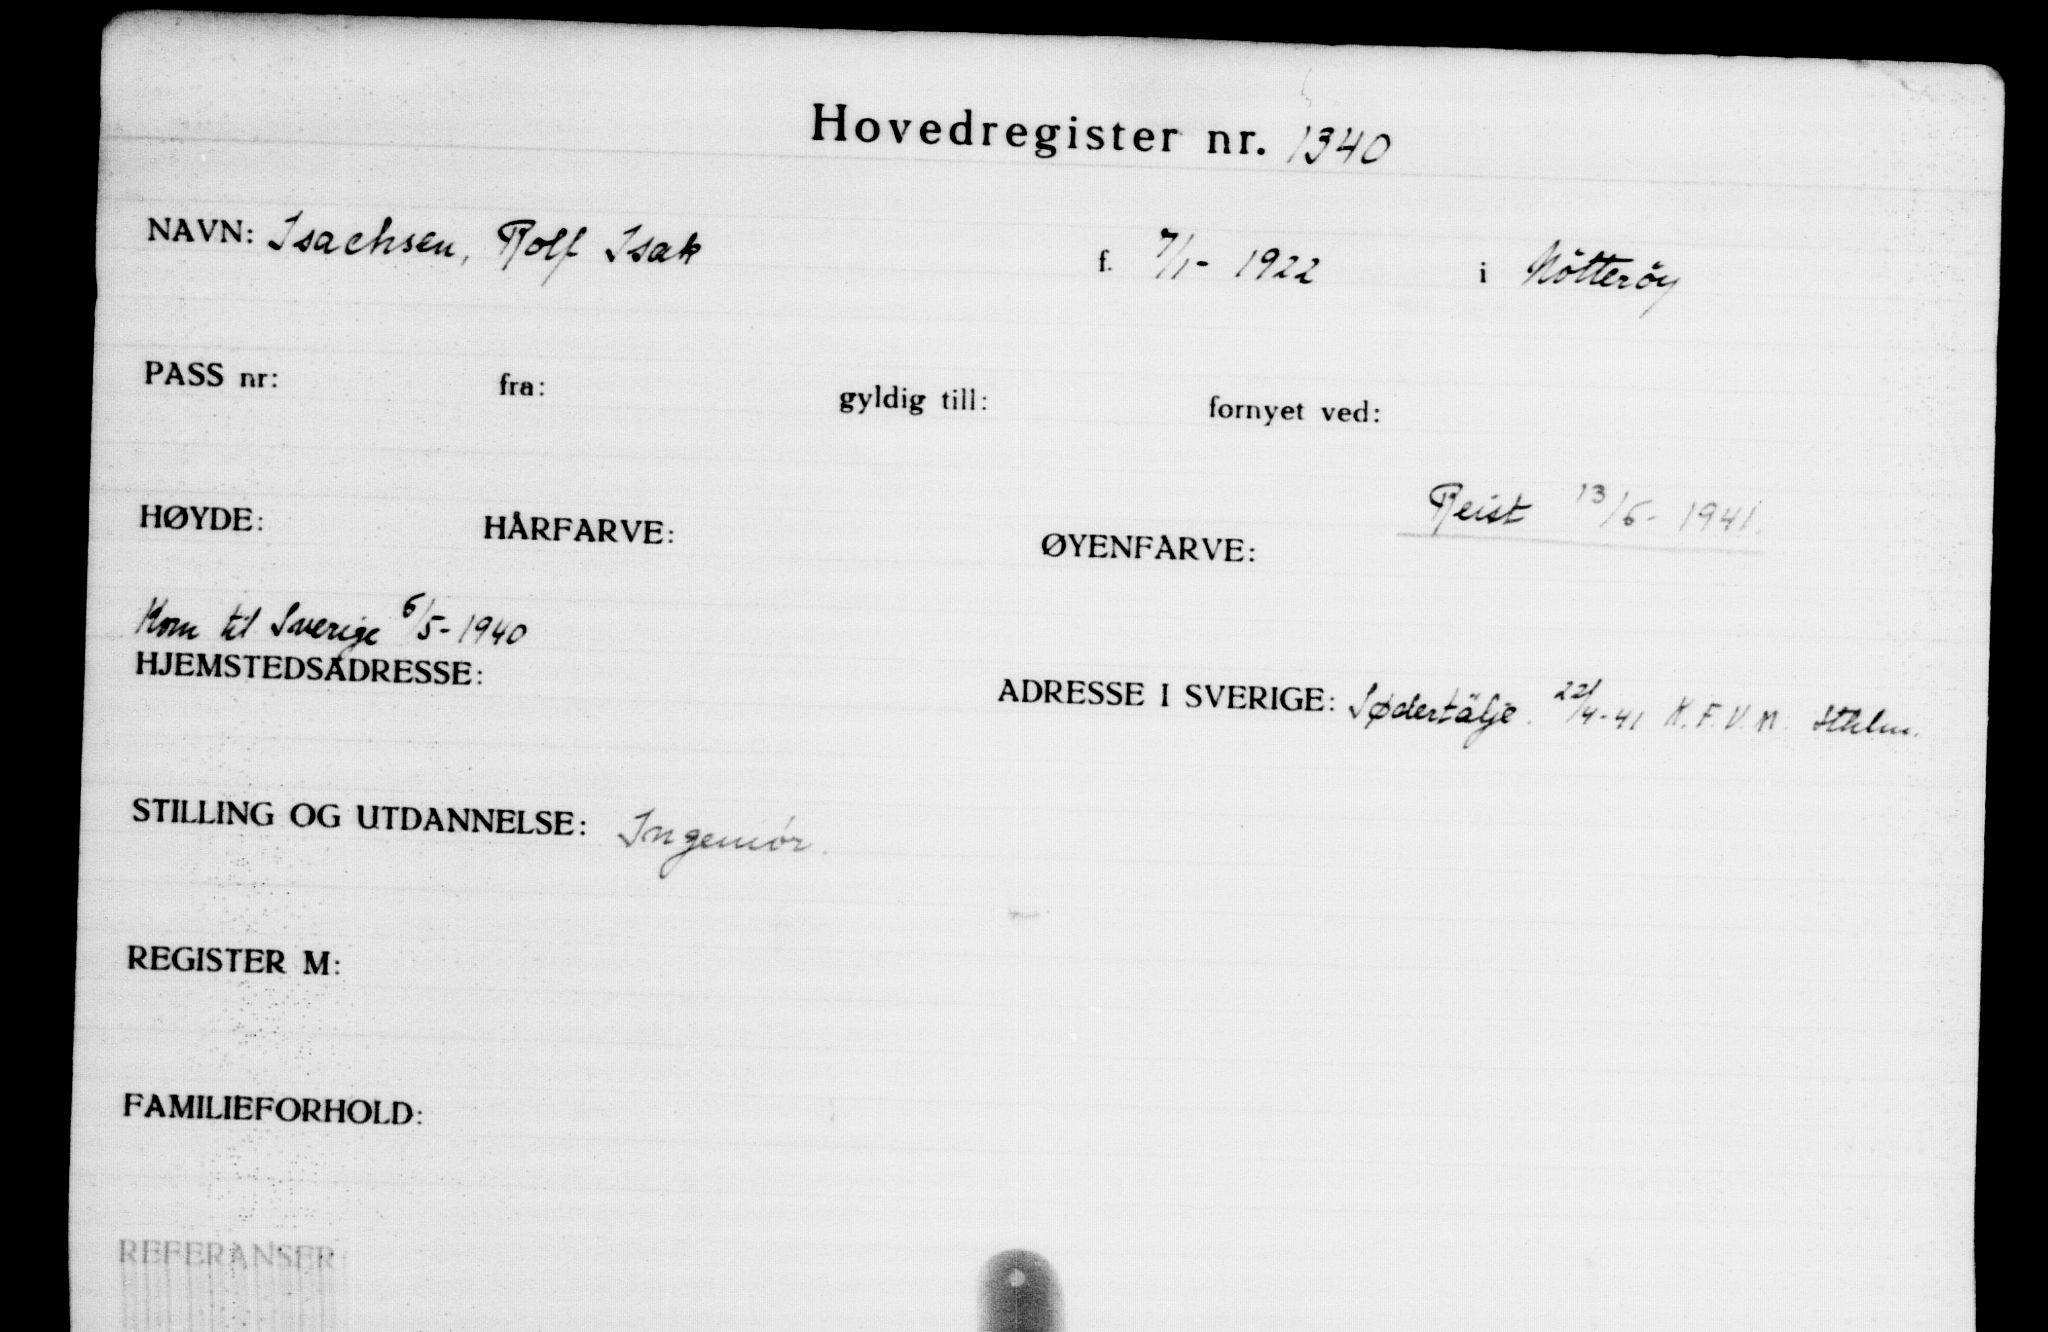 Hovedregister nr. 1340
NAVN: Isachsen, Rolf Isak f. 7/1- 1922 i Nötteröy
PASS nr: fra: gyldig till: fornyet ved:
Reist 13/6- 1941.
HØYDE: HÅRFARVE: ØYENFARVE:
Kom til Sverige 6/5-1940
HJEMSTEDSADRESSE: ADRESSE I SVERIGE: Sødertälje. 22/4-41 K.F.U.M. Sthlm.
STILLING OG UTDANNELSE: Ingeniør.
REGISTER M:
FAMILIEFORHOLD:
REFERANSER